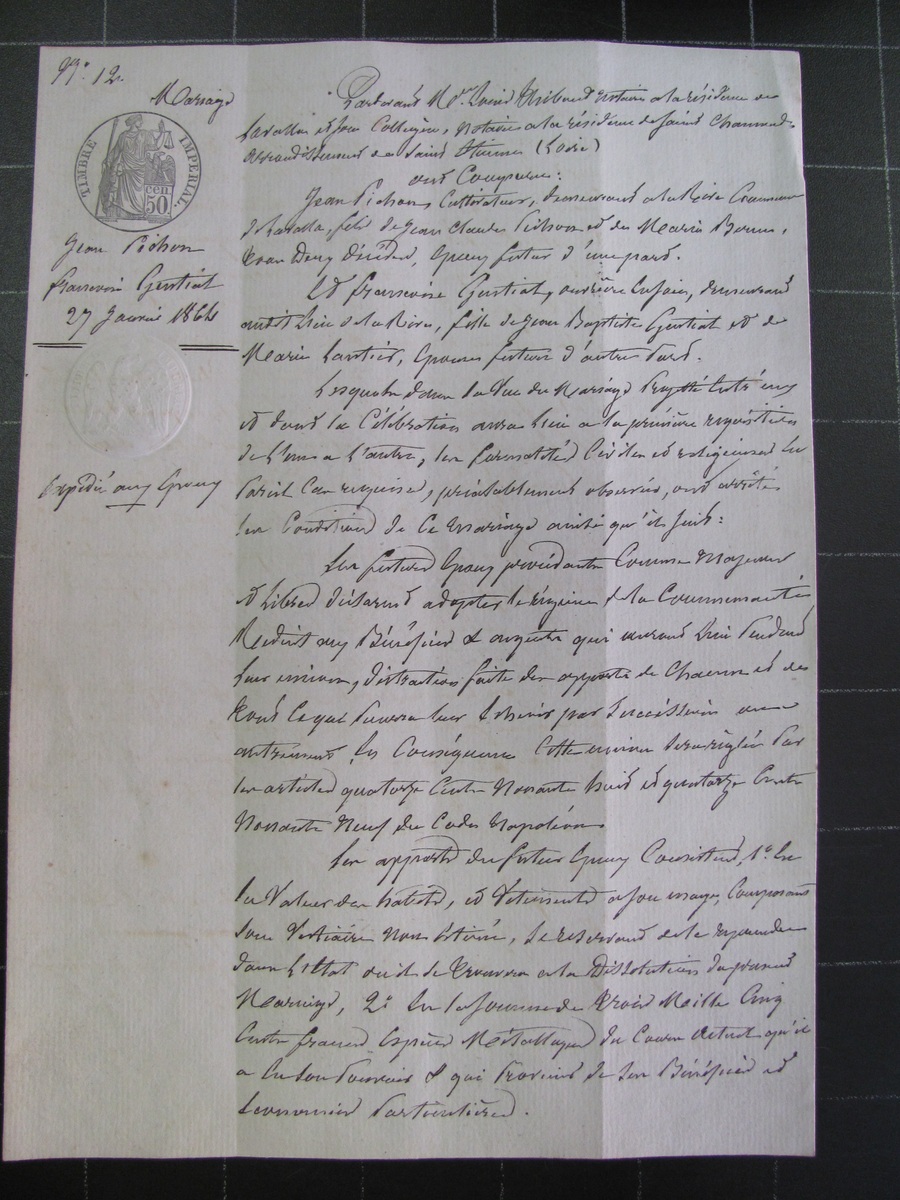 N.° 12
Mariage
TIMBRE IMPERIAL
50 cen
Jean Pichon
françoise Gentiat
27 Janvier 1864
Expédié aux Epoux
Pardevant M.e Louis Thibaud notaire a la résidence de
Lavalla et son Collègue, notaire a la résidence de Saint Chamond,
arrondissement de Saint Etienne (Loire)
ont Comparu:
Jean Pichon, Cultivateur, demeurant a la Rive Commune
de Lavalla, fils de Jean Claude Pichon et de Marie
tous Deux décédés, Epoux futur d'une part.
Et françoise Gentiat, ouvrière en soie, demeurant
audit Lieu de la Rive, fille de Jean Baptiste Gentiat et de
Marie Lantier, Epouse future d'autre Part.
Lesquels dans la Vue du Mariage Projetté Entr'eux
et dont la Célébration aura Lieu a la première réquisition
de L'une a L'autre, les formalités Civiles et religieuses En
Pareil Cas requises, préalablement observées, ont arrêté
les Conditions de Ce mariage ainsi qu'il suit:
Les futurs Epoux procédants Comme Majeurs
et Libres déclarent adopter le régime de la Communauté
Réduit aux Bénéfices & acquets qui auront Lieu Pendant
Leur union, distraction faite des apports de Chacun et de
tout Ce qui Pourra leur Echoir par Succéssion ou
autrement, En Conséquence Cette union sera réglée Par
les articles quatorze Cents Nonante huit et quatorze Cents
Nonante Neuf du Code Napoléon.
Les apports du futur Epoux Consistent, 1.° En
la Valeur des habits, et Vêtements a son usage, Composant
son Vestiaire Non Estimé, se réservant de le reprendre
dans L'Etat ou il se trouvera a la Dissolution du présent
Mariage, 2.° En la Somme de trois Mille Cinq
Cents francs Espèces Métalliques du Cours actuel qu'il
a En son Pouvoir & qui Provient de ses Bénéfices et
Economies Particulières.